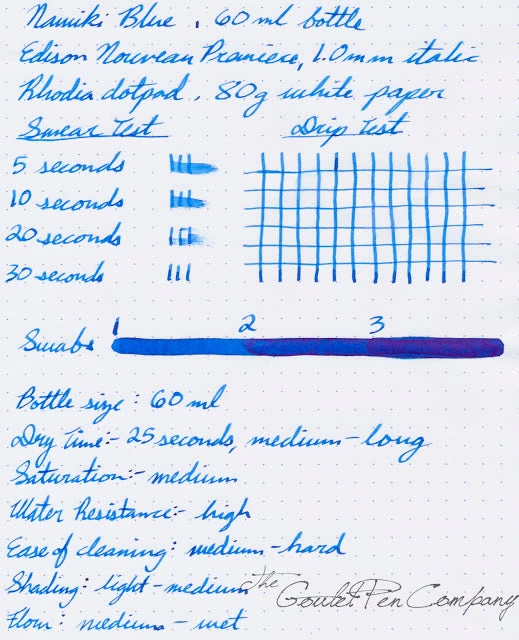 Namiki Blue, 60 ml bottle
Edison Nouveau Premiere, 1.0mm italic
Rhodia dotpad, 80g white paper
Smear Test
Drip Test
5 seconds
10 seconds
20 seconds
30 seconds
1 2 3
Swabs
Bottle size: 60 ml
Dry Time:- 25 seconds, medium-long
Saturation:- medium
Water Resistance:- high
Ease of cleaning: medium-hard
Shading: light-medium
the Goulet Pen Company
Flow: medium-wet